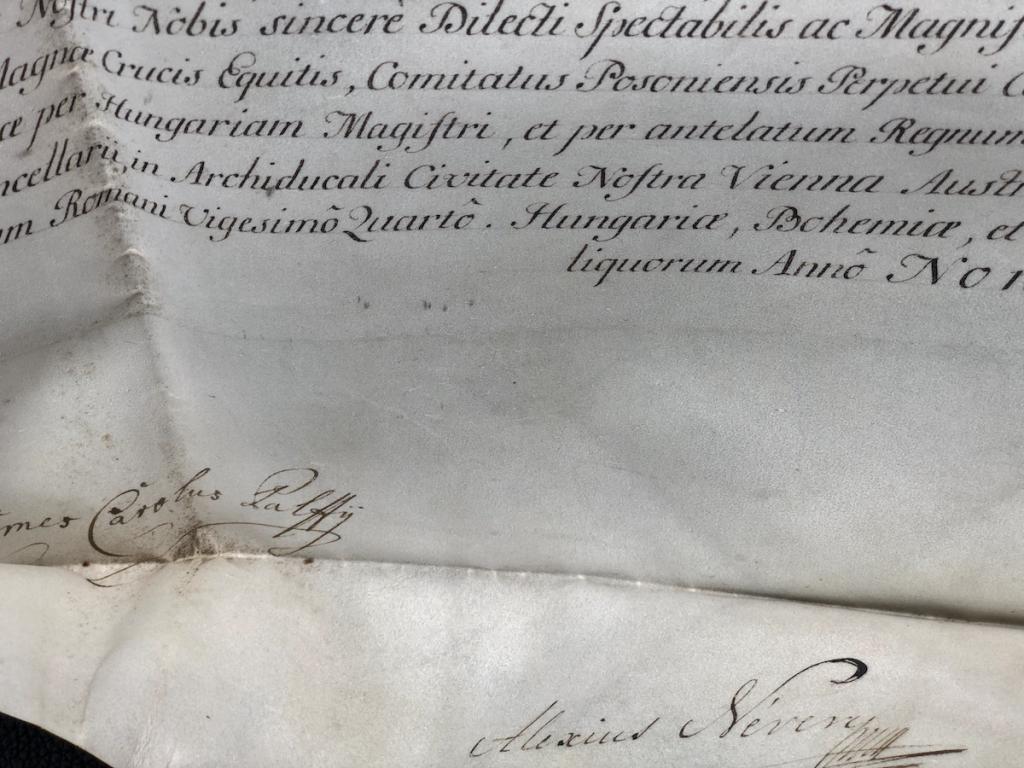 Nostri Nobis sincerè Dilecti Spectabilis ac Magnif
Magnæ Crucis Equitis, Comitatus Posoniensis Perpetui C
æ per Hungariam Magiſtri, et per antelatum Regnum
ncellarii, in Archiducali Civitate Noſtra Vienna Auſtr
om Romani Vigesimô Quartô. Hungariæ, Bohemiæ, et
liquorum Annô Non
omes Carolus Palffÿ
Alexius Névery